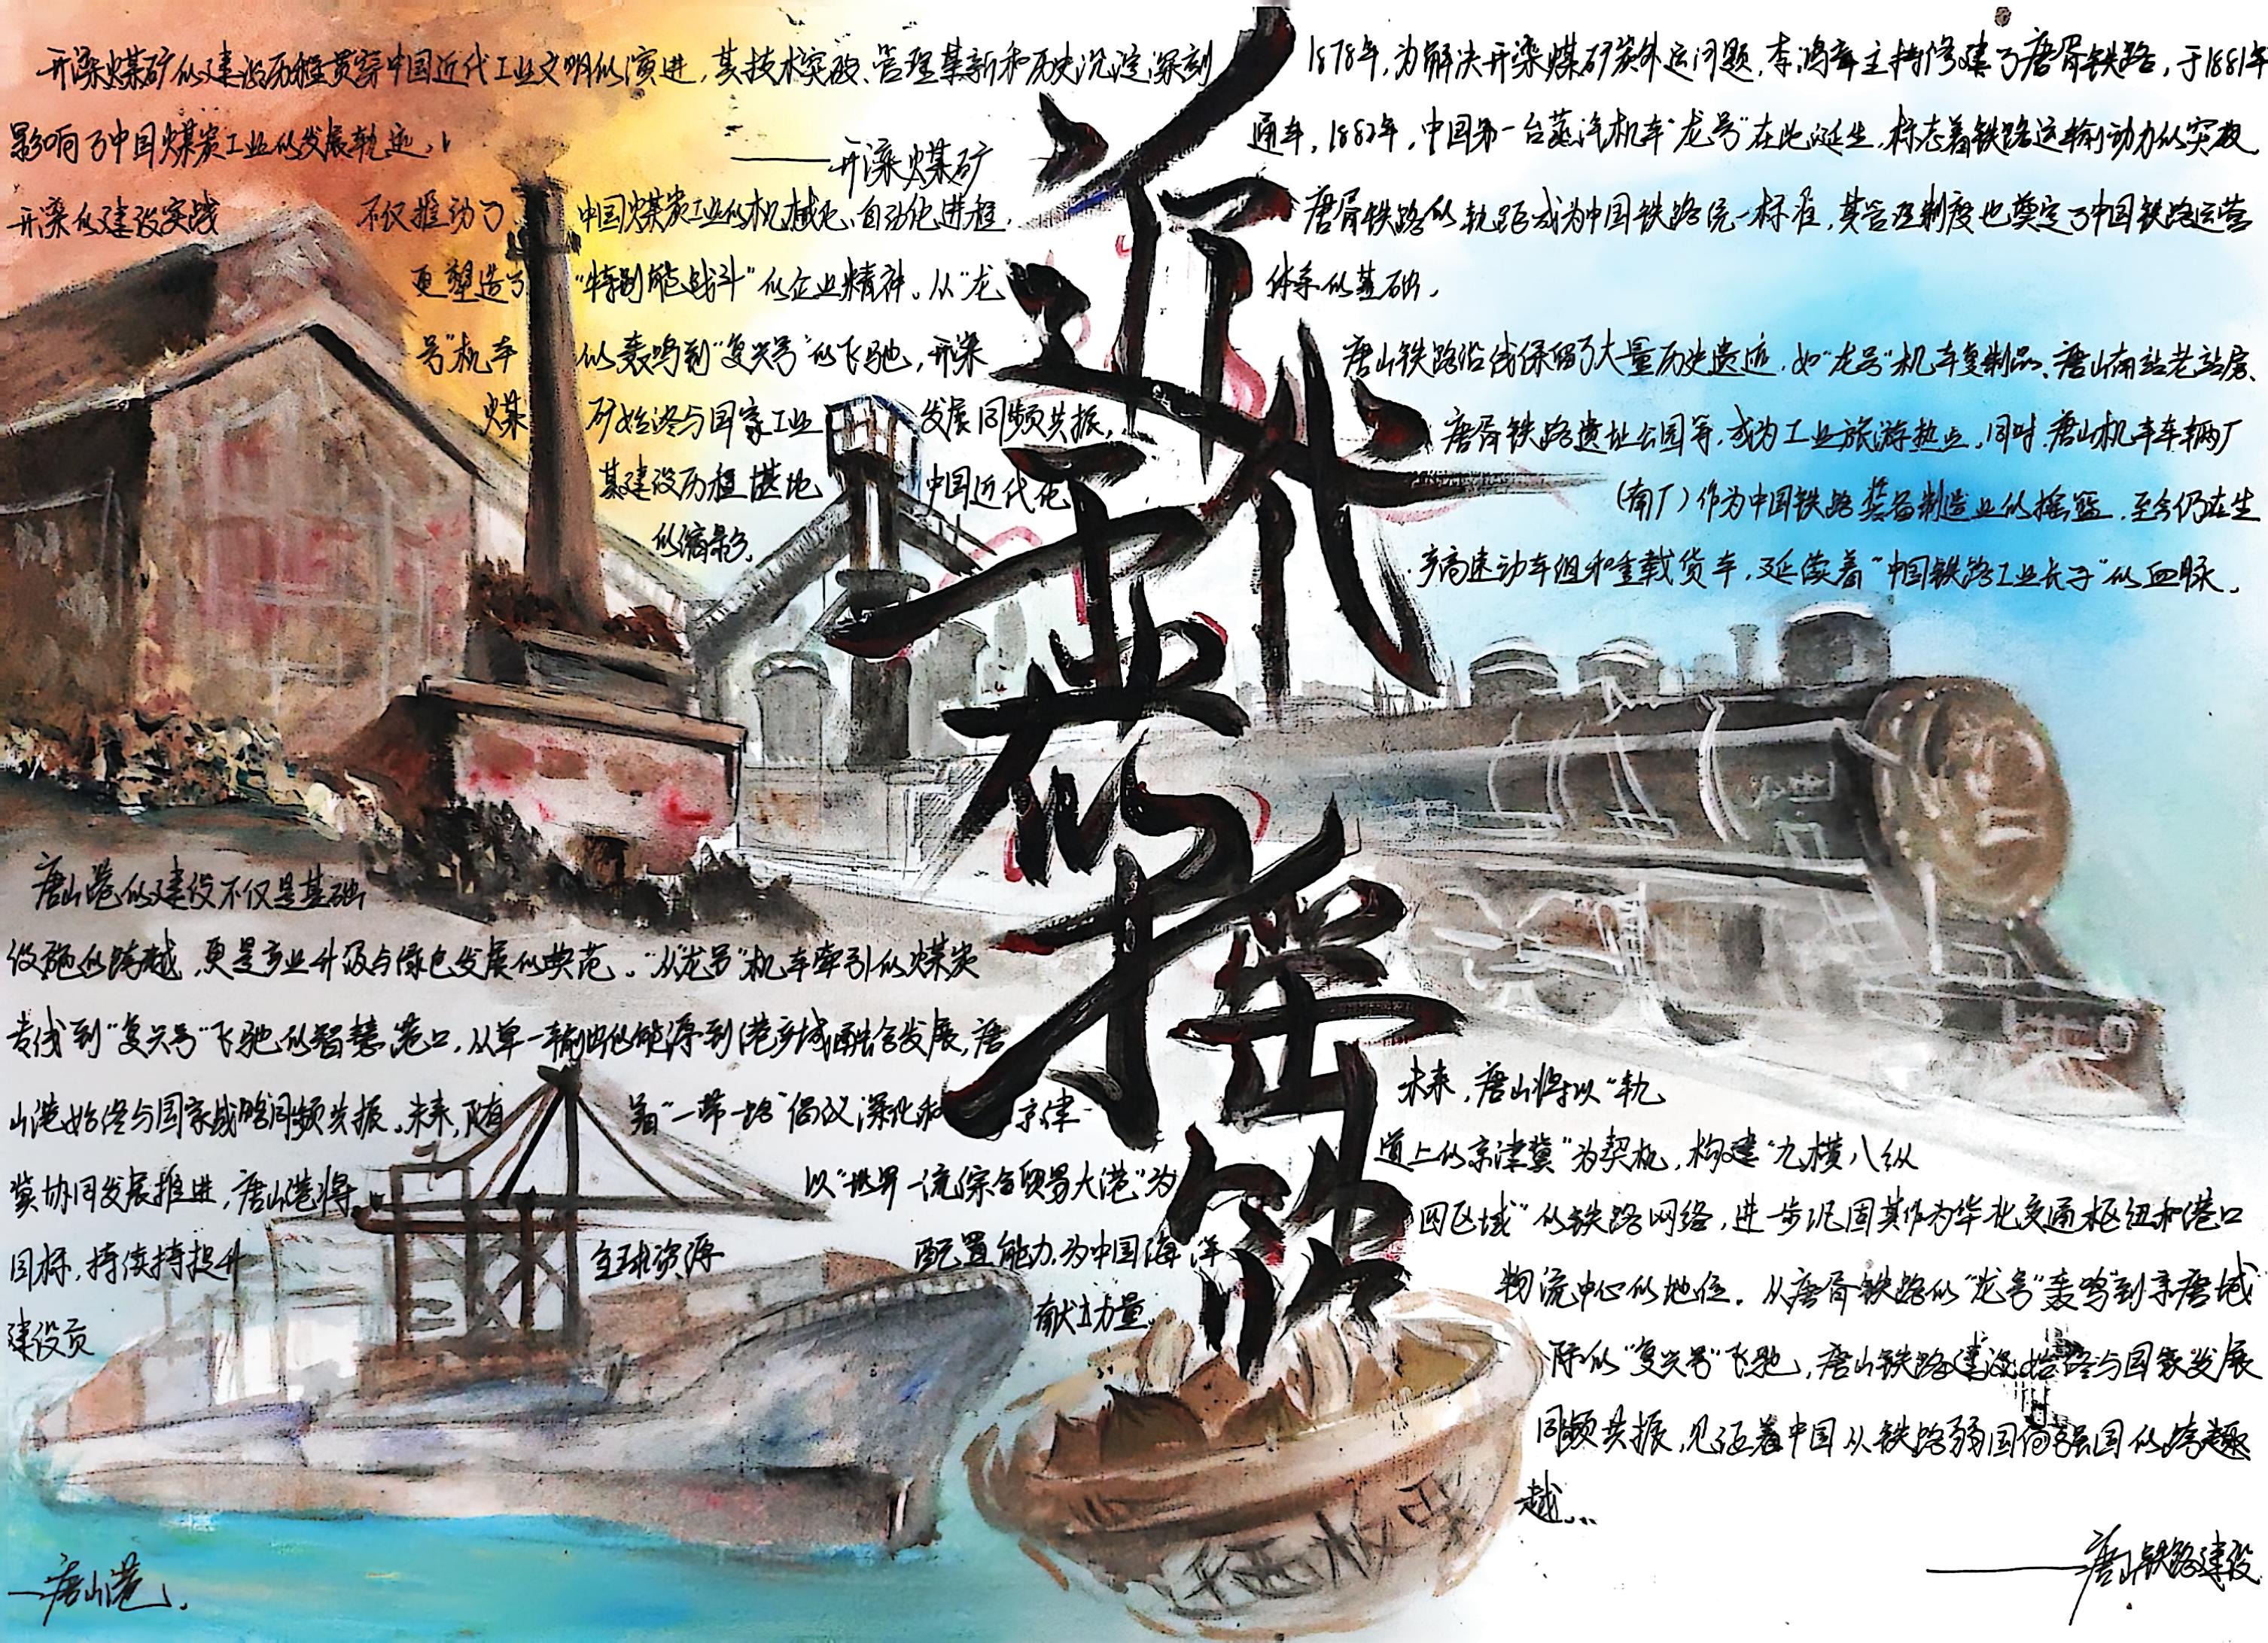 开滦煤矿的建设历程贯穿中国近代工业文明的演进，其技术突破、管理革新和历史沉淀深刻
影响了中国煤炭工业的发展轨迹，
——开滦煤矿
开滦的建设实践 不仅推动了 中国煤炭工业的机械化、自动化进程，
更塑造了 “特别能战斗”的企业精神。从“龙
号”机车 的轰鸣到“复兴号”的飞驰，开滦
煤 矿始终与国家工业 发展同频共振，
其建设历程堪地 中国近代化
的缩影。
近代工业的摇篮
1878年，为解决开滦煤矿炭外运问题，李鸿章主持修建了唐胥铁路，于1881年
通车，1882年，中国第一台蒸汽机车“龙号”在此诞生，标志着铁路运输动力的突破，
唐胥铁路的轨距成为中国铁路统一标准，其管理制度也奠定了中国铁路运营
体系的基础，
唐山铁路沿线保留了大量历史遗迹，如“龙号”机车复制品、唐山南站老站房、
唐胥铁路遗址公园等，成为工业旅游热点，同时，唐山机车车辆厂
（南厂）作为中国铁路装备制造业的摇篮，至今仍在生
产高速动车组和重载货车，延续着“中国铁路工业长子”的血脉。
唐山港的建设不仅是基础
设施的跨越，更是产业升级与绿色发展的典范。“从“龙号”机车牵引的煤炭
专线到“复兴号”飞驰的智慧港口，从单一输出的能源到港产城融合发展，唐
山港始终与国家战略同频共振。未来，随 着“一带一路”倡议深化和 京津
冀协同发展推进，唐山港将 以“世界一流综合贸易大港”为
目标，持续持提升 全球资源 配置能力，为中国海洋
建设贡 献力量。
—唐山港。
未来，唐山将以“轨
道上的京津冀”为契机，构建“九横八纵
四区域”的铁路网络，进一步巩固其作为华北交通枢纽和港口
物流中心的地位。从唐胥铁路的“龙号”轰鸣到京唐城
际的“复兴号”飞驰，唐山铁路建设始终与国家发展
同频共振，见证着中国从铁路弱国向强国的跨
越...
——唐山铁路建设